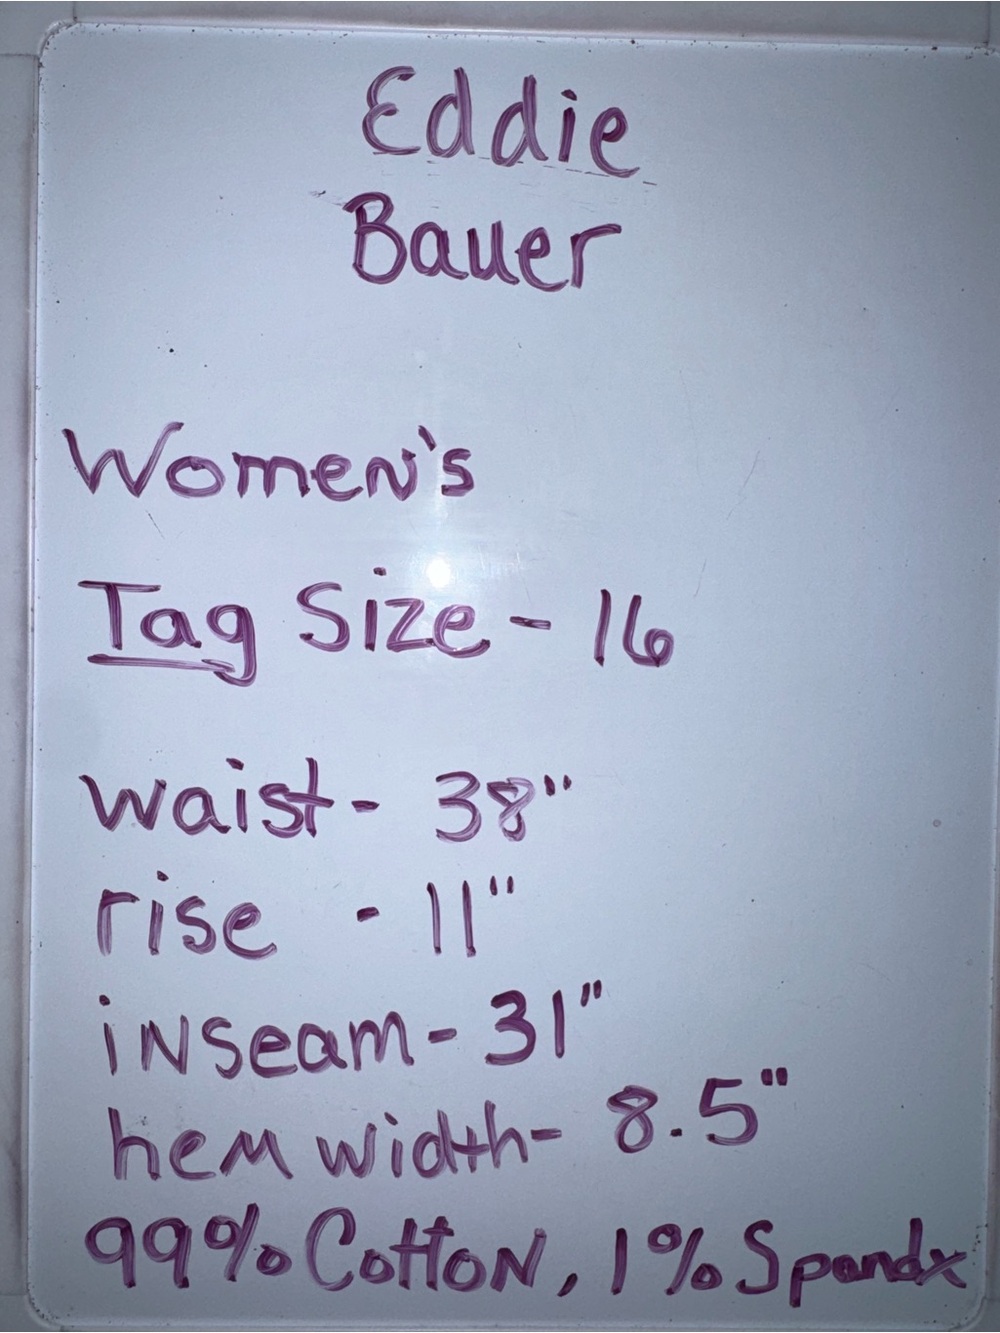 Eddie
Bauer
Women's
Tag Size - 16
waist - 38"
rise - 11"
inseam - 31"
hem width - 8.5"
99% Cotton, 1% Spandx